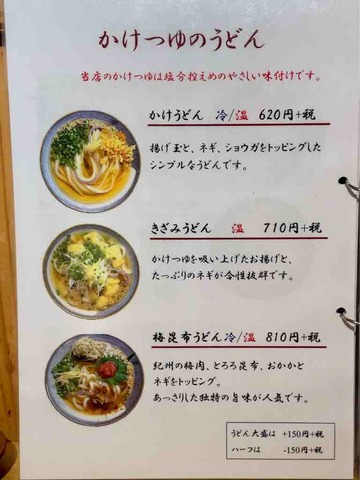 かけつゆのうどん
当店のかけつゆは塩分控えめのやさしい味付けです。
かけうどん 冷/温 620円+税
揚げ玉と、ネギ、ショウガをトッピングした
シンプルなうどんです。
きざみうどん 温 710円+税
かけつゆを吸い上げたお揚げと、
たっぷりのネギが合性抜群です。
梅昆布うどん 冷/温 810円+税
紀州の梅肉、とろろ昆布、おかかと
ネギをトッピング。
あっさりした独特の旨味が人気です。
うどん大盛は +150円+税
ハーフは -150円+税